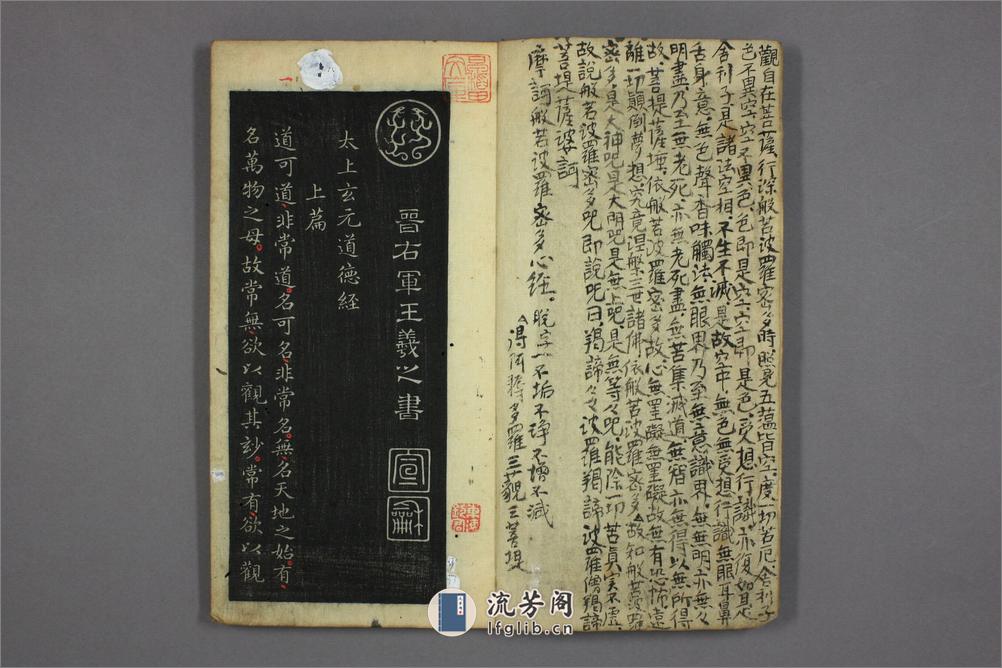 觀自在菩薩、行深般若波羅密多時照見五蘊皆空、度一切苦厄舍利子
色不異空、空不異色、色即是空、空即是色、受想行識、亦復如是
舍利子是諸法空相、不生不滅、是故空中無色無受想行識無眼耳鼻
舌身意、無色聲香味觸法、無眼界乃至無意識界、無無明亦無無
明盡、乃至無老死、亦無老死盡、無苦集滅道、無智亦無得以無所得
故、菩提薩埵、依般若波羅密多故、心無罣礙、無罣礙故無有恐怖遠
離一切顛倒夢想究竟涅槃三世諸佛依般若波羅密多、故知般若波羅
密多、是大神咒是大明咒是無上咒、是無等々咒、能除一切苦真實不虛、
故說般若波羅密多咒即說咒曰揭諦々々波羅揭諦波羅僧揭諦
菩提薩婆訶
摩訶般若波羅密多心經、脫字一不垢不淨不增不減
得阿耨多羅三藐三菩提
晉右軍王羲之書
宣
龢
太上玄元道德經
上篇
道可道非常道名可名非常名無名天地之始有
名萬物之母故常無欲以觀其妙常有欲以觀
流芳阁
lfglib.cn